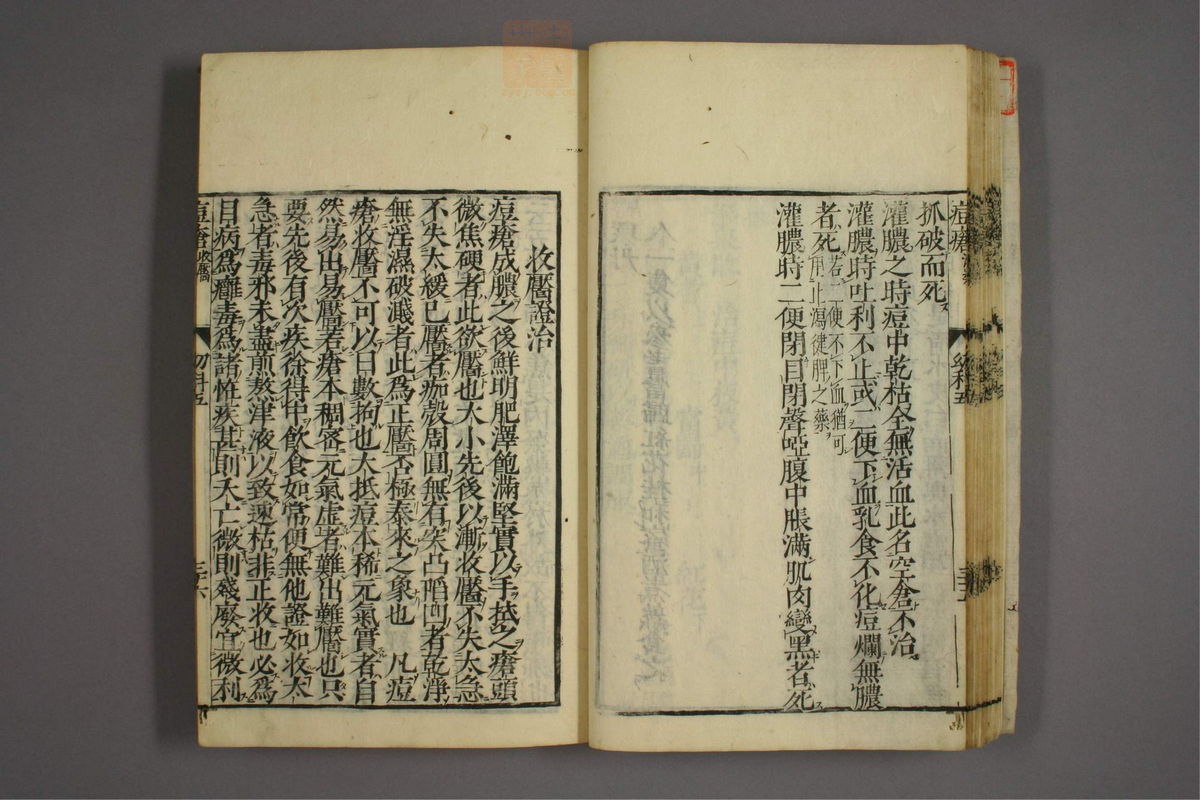 抓破而死
灌膿之時痘中乾枯全無活血此名空倉不治
灌膿時吐利不止或二便下血乳食不化痘爛無膿
者死若二便不下血猶可用止瀉健脾之藥
灌膿時二便閉目閉聲啞腹中脹滿肌肉變黑者死
收靨證治
痘瘡成膿之後鮮明肥澤飽滿堅實以手拭之瘡頭
微焦硬者此欲靨也大小先後以漸收靨不失太急
不失太緩已靨者痂殼周圓無有突凸陷凹者乾淨
無淫濕破濺者此為正靨否極泰來之象也 凡痘
瘡收靨不可以日數拘也大抵痘本稀元氣實者自
然易出易靨若瘡本稠密元氣虛者難出難靨也只
要先後有次疾徐得中飲食如常便無他證如收太
急者毒邪未盡煎熬津液以致速枯非正收也必為
目病為癰毒為諸恠疾甚則夭亡微則殘廢宜微利
痘瘡 收靨 幼科五 三十六